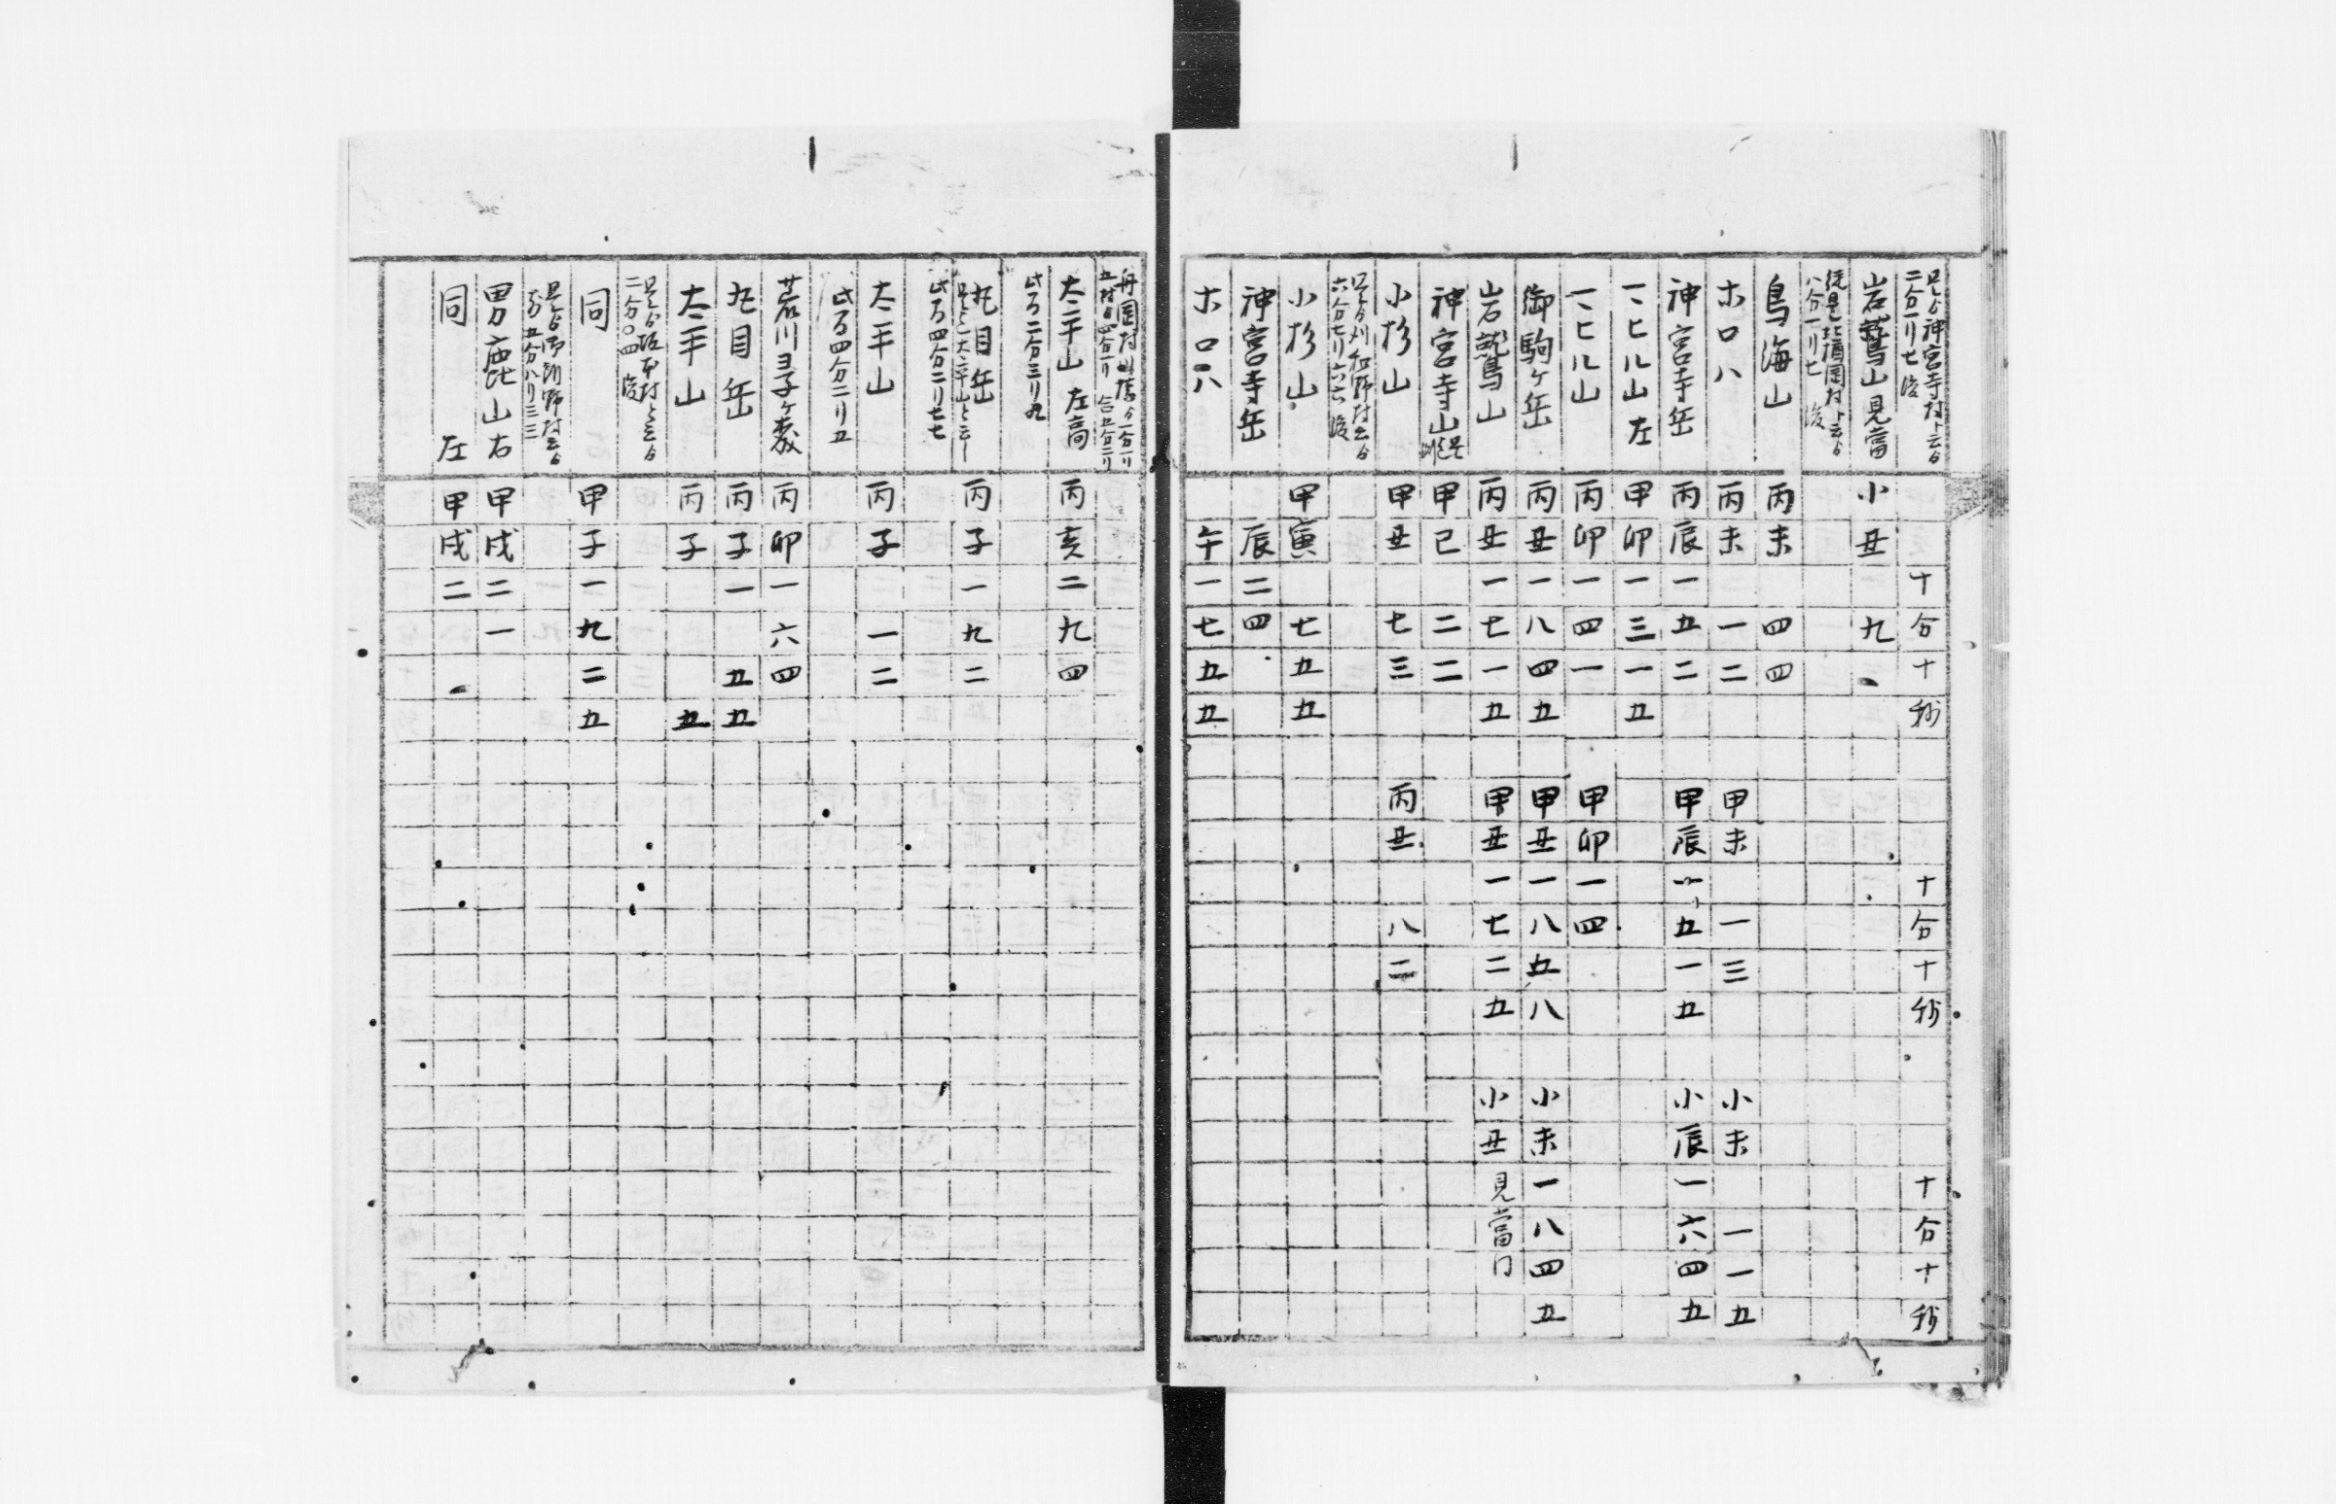 是ゟ神宮寺村ト云ゟ
二分一リ七没
十分十秒 十分十秒 十分十秒
岩鷲山見當 小丑 九
從是北楢岡村ト云ゟ
八分一リ七 没
鳥海山 丙未 四四
ホロハ 丙未 一二 甲未 一三 小未 一一五
神宮寺岳 丙辰一五二 甲辰一五一五 小辰一六四五
一ヒル山左 甲卯一三一五
一ヒル山 丙卯一四一 甲卯一四
御駒ヶ岳 丙丑一八四五 甲丑一八五八 小未一八四五
岩鷲山 丙丑一七一五 甲丑一七二五 小丑見當
神宮寺山 甲巳 二二
小杉山 甲丑 七三 丙丑 八二
是ゟ刈和野村云ゟ
六分七リ六六 没
小杉山 甲寅 七五五
神宮寺岳 辰二四
ホロハ 午一七五五
太平山 左高 丙亥二九四
此間二分三リ九
丸目岳 丙子一九二
是ヨ太平山と云
此間四分二リ七七
太平山 丙子 一二
此間四分二リ五
荒川ヨ子ヶ森 丙卯一六四
丸目岳 丙子一 五五
太平山 丙子 五
是ゟ坂本村と云ゟ
二分〇四没
同 甲子一九二五
是ゟ御所野村云ゟ
五分八リ三三
男鹿山右 甲戌二一
同 左 甲戌二